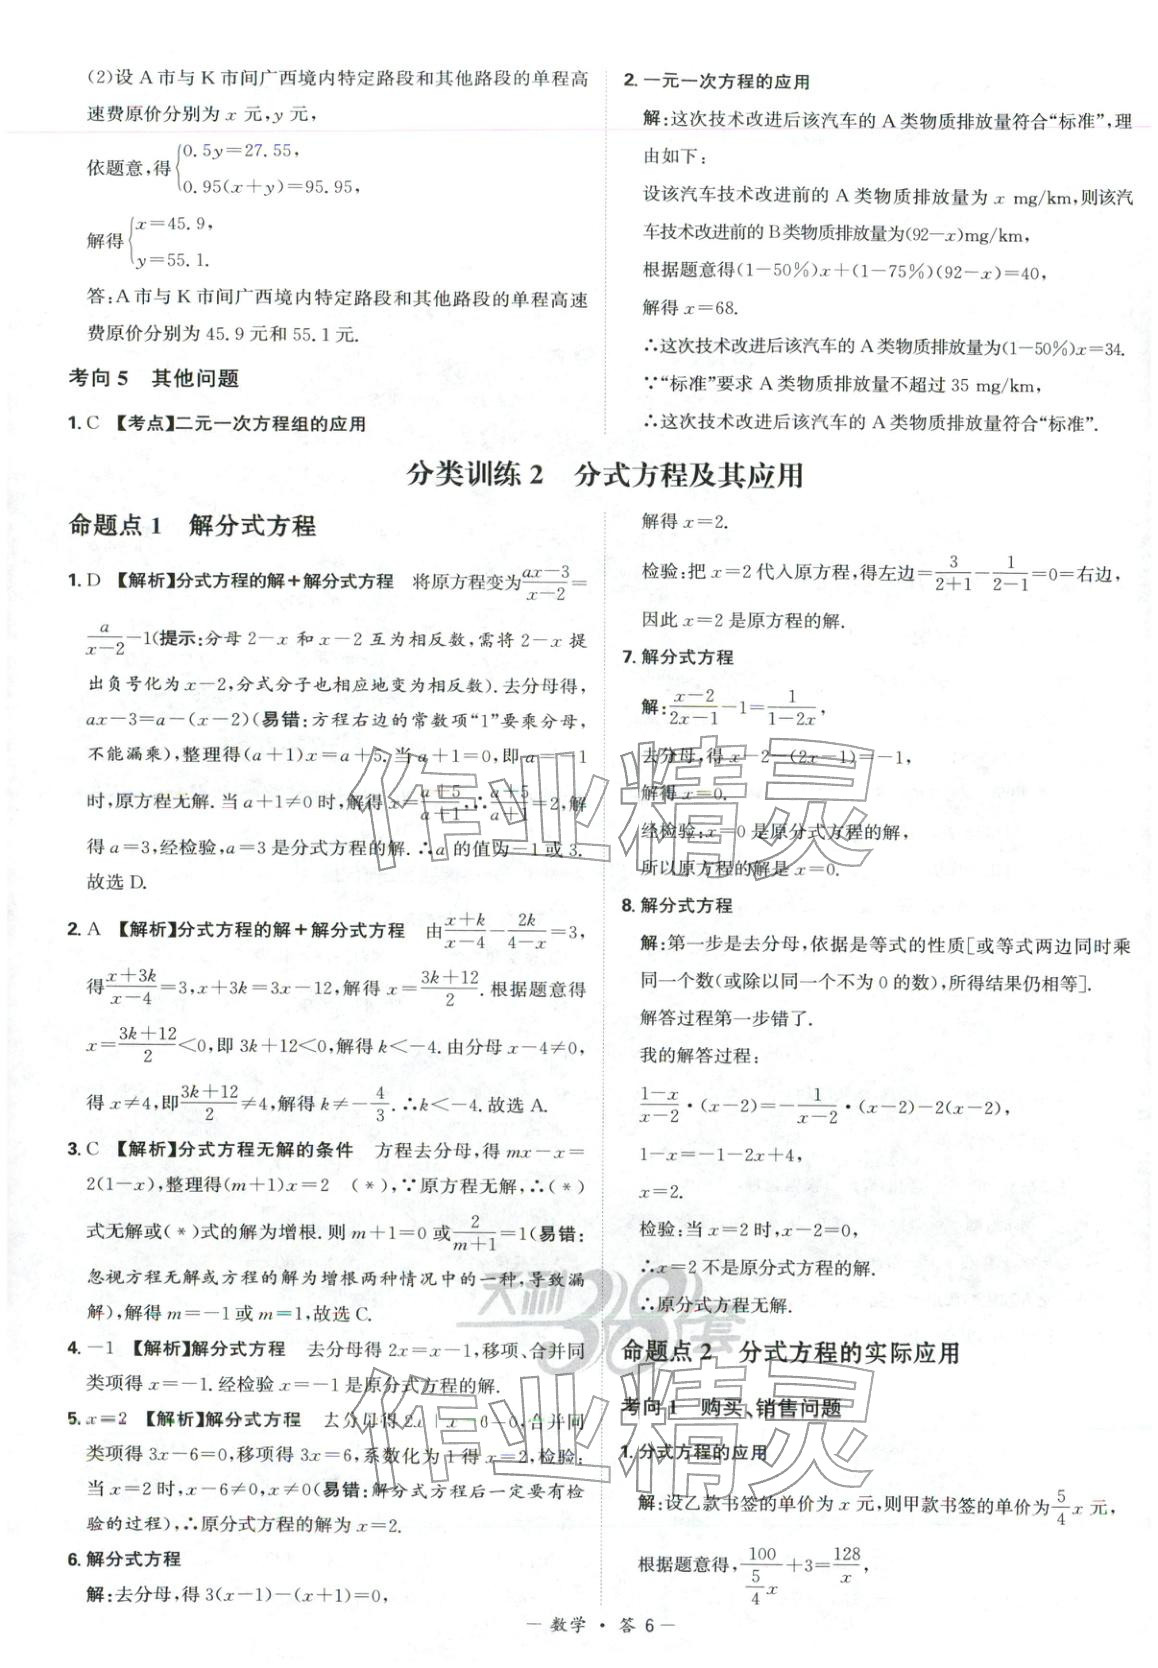 (2)设A市与K市间广西境内特定路段和其他路段的单程高
速费原价分别为x元,y元,
依题意,得{0.5y=27.55,
0.95(x+y)=95.95,
解得{x=45.9,
y=55.1.
答:A市与K市间广西境内特定路段和其他路段的单程高速
费原价分别为45.9元和55.1元.
考向5 其他问题
1. C 【考点】二元一次方程组的应用
2. 一元一次方程的应用
解:这次技术改进后该汽车的A类物质排放量符合“标准”,理
由如下:
设该汽车技术改进前的A类物质排放量为x mg/km,则该汽
车技术改进前的B类物质排放量为(92-x)mg/km,
根据题意得(1-50%)x+(1-75%)(92-x)=40,
解得x=68.
∴这次技术改进后该汽车的A类物质排放量为(1-50%)x=34.
∵“标准”要求A类物质排放量不超过35 mg/km,
∴这次技术改进后该汽车的A类物质排放量符合“标准”.
分类训练2 分式方程及其应用
命题点1 解分式方程
1. D 【解析】分式方程的解+解分式方程 将原方程变为(ax-3)/(x-2)=
a/(x-2)-1(提示:分母2-x和x-2互为相反数,需将2-x提
出负号化为x-2,分式分子也相应地变为相反数).去分母得,
ax-3=a-(x-2)(易错:方程右边的常数项“1”要乘分母,
不能漏乘),整理得(a+1)x=a+5.当a+1=0,即a=-1
时,原方程无解.当a+1≠0时,解得x=(a+5)/(a+1),∴(a+5)/(a+1)=2,解
得a=3,经检验,a=3是分式方程的解.∴a的值为-1或3.
故选D.
2. A 【解析】分式方程的解+解分式方程 由(x+k)/(x-4)-2k/(4-x)=3,
得(x+3k)/(x-4)=3,x+3k=3x-12,解得x=(3k+12)/2.根据题意得
x=(3k+12)/2<0,即3k+12<0,解得k<-4.由分母x-4≠0,
得x≠4,即(3k+12)/2≠4,解得k≠-4/3.∴k<-4.故选A.
3. C 【解析】分式方程无解的条件 方程去分母,得mx-x=
2(1-x),整理得(m+1)x=2 (*),∵原方程无解,∴(*)
式无解或(*)式的解为增根.则m+1=0或2/(m+1)=1(易错:
忽视方程无解或方程的解为增根两种情况中的一种,导致漏
解),解得m=-1或m=1,故选C.
4. -1 【解析】解分式方程 去分母得2x=x-1,移项、合并同
类项得x=-1.经检验x=-1是原分式方程的解.
5. x=2 【解析】解分式方程 去分母得2x+x-6=0,合并同
类项得3x-6=0,移项得3x=6,系数化为1得x=2,检验:
当x=2时,x-6≠0,x≠0(易错:解分式方程后一定要有检
验的过程),∴原分式方程的解为x=2.
6. 解分式方程
解:去分母,得3(x-1)-(x+1)=0,
解得x=2.
检验:把x=2代入原方程,得左边=3/(2+1)-1/(2-1)=0=右边,
因此x=2是原方程的解.
7. 解分式方程
解:(x-2)/(2x-1)-1=1/(1-2x),
去分母,得x-2-(2x-1)=-1,
解得x=0.
经检验:x=0是原分式方程的解,
所以原方程的解是x=0.
8. 解分式方程
解:第一步是去分母,依据是等式的性质[或等式两边同时乘
同一个数(或除以同一个不为0的数),所得结果仍相等].
解答过程第一步错了.
我的解答过程:
(1-x)/(x-2)·(x-2)=-1/(x-2)·(x-2)-2(x-2),
1-x=-1-2x+4,
x=2.
检验:当x=2时,x-2=0,
∴x=2不是原分式方程的解.
∴原分式方程无解.
命题点2 分式方程的实际应用
考向1 购买、销售问题
1. 分式方程的应用
解:设乙款书签的单价为x元,则甲款书签的单价为5/4x元,
根据题意得,100/(5/4x)+3=128/x,
— 数学·答6 —
作业精灵
天利38套
作业精灵